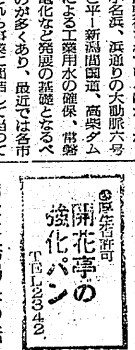 名浜、浜通りの大動脈六号
平―新潟間国道、高柴ダム
による工業用水の確保、常磐
電化など発展の基礎となるべ
のが多くあり、最近では各市
厚生省許可
開花亭の
強化パン
TEL2342